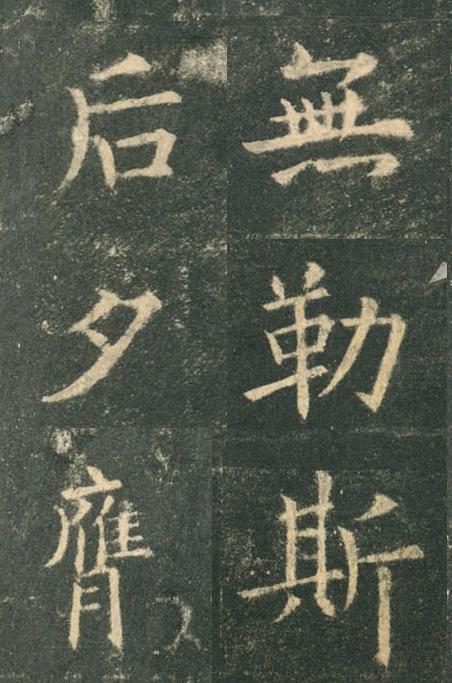 無勒斯
后夕膺